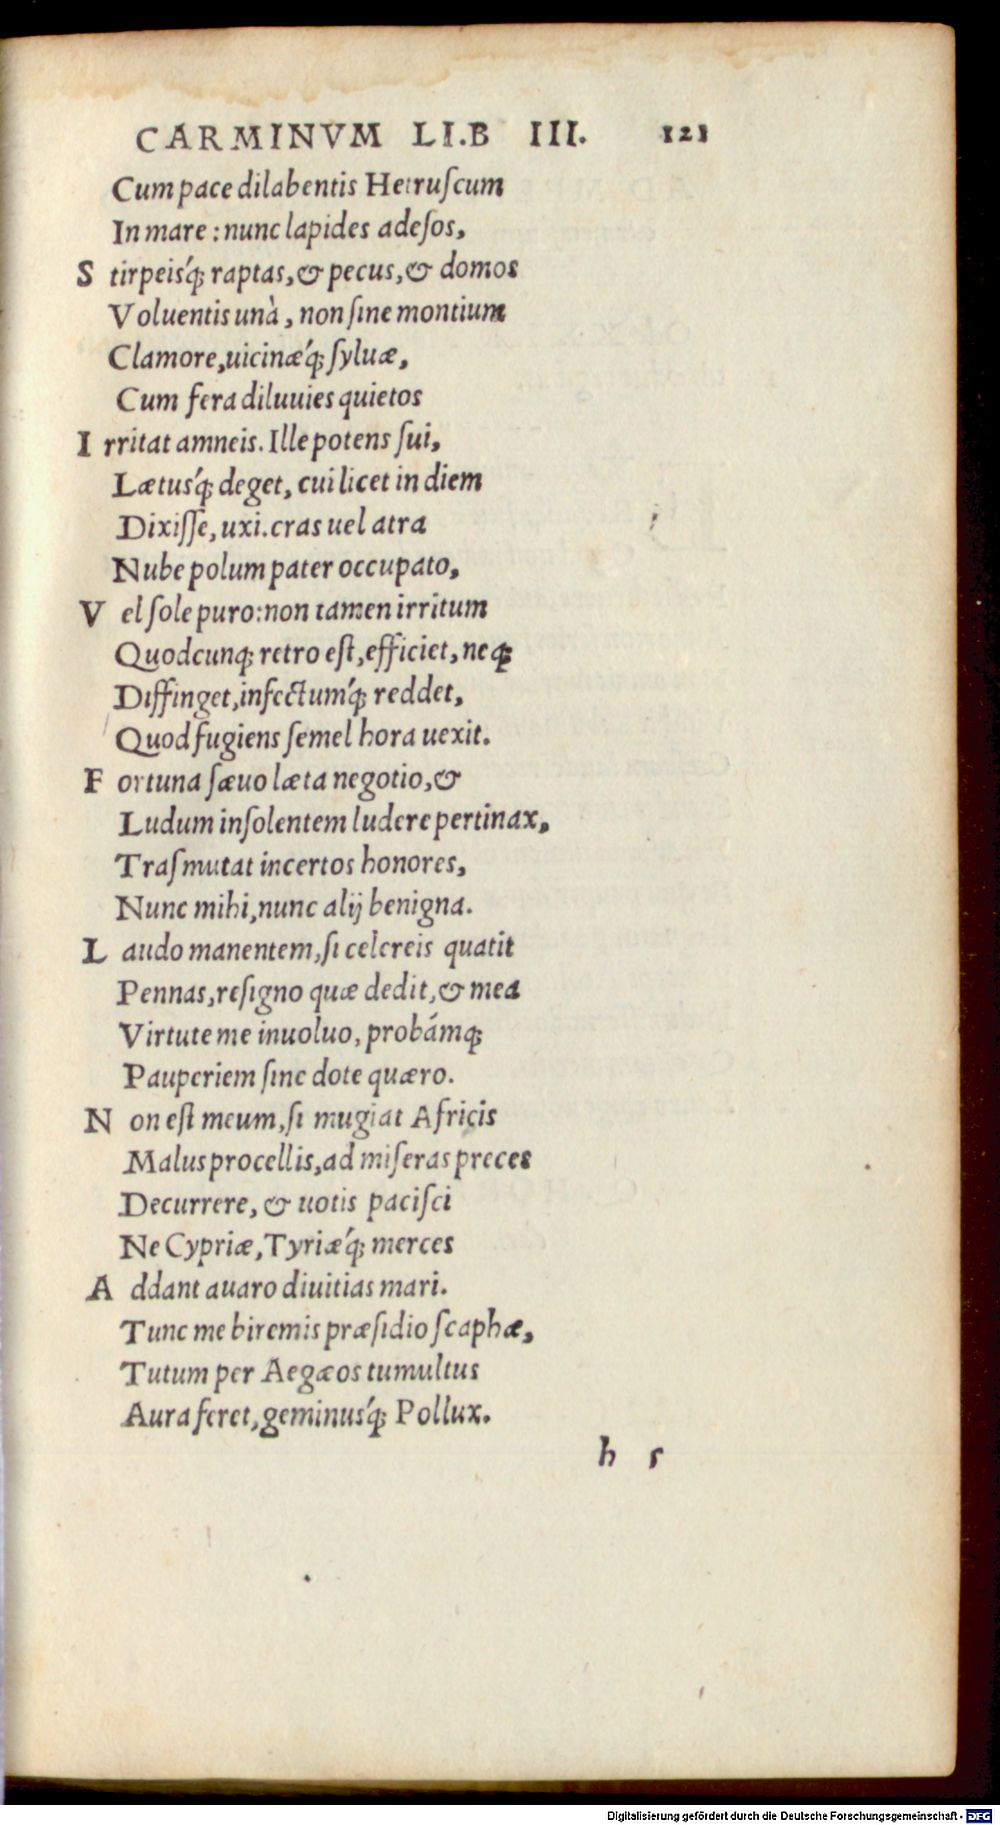 CARMINVM LI.B III. 121
Cum pace dilabentis Hetruſcum
In mare : nunc lapides adeſos,
S tirpeiſq́ꝫ raptas, & pecus, & domos
Voluentis unà, non ſine montium
Clamore, uicinæq́ꝫ ſyluæ,
Cum fera diluuies quietos
I rritat amneis. Ille potens ſui,
Lætuſq́ꝫ deget, cui licet in diem
Dixiſſe, uxi. cras uel atra
Nube polum pater occupato,
V el ſole puro: non tamen irritum
Quodcunqꝫ retro eſt, efficiet, neqꝫ
Diffinget, infectumq́ꝫ reddet,
Quod fugiens ſemel hora uexit.
F ortuna ſæuo læta negotio, &
Ludum inſolentem ludere pertinax,
Traſmutat incertos honores,
Nunc mihi, nunc alij benigna.
L audo manentem, ſi celereis quatit
Pennas, reſigno quæ dedit, & mea
Virtute me inuoluo, probámqꝫ
Pauperiem ſine dote quæro.
N on eſt meum, ſi mugiat Africis
Malus procellis, ad miſeras preces
Decurrere, & uotis paciſci
Ne Cypriæ, Tyriæq́ꝫ merces
A ddant auaro diuitias mari.
Tunc me biremis præſidio ſcaphæ,
Tutum per Aegæos tumultus
Aura feret, geminuſq́ꝫ Pollux.
h 5
Digitalisierung gefördert durch die Deutsche Forschungsgemeinschaft - DFG